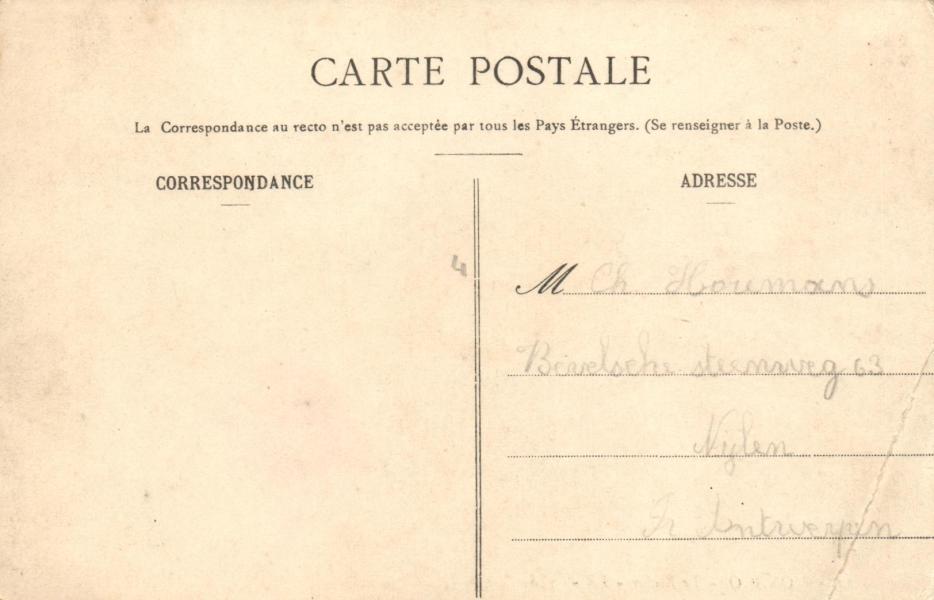 CARTE POSTALE
La Correspondance au recto n'est pas acceptée par tous les Pays Étrangers. (Se renseigner à la Poste.)
CORRESPONDANCE
ADRESSE
4
M Ch
steenweg 63
Nylen
Antwerpen